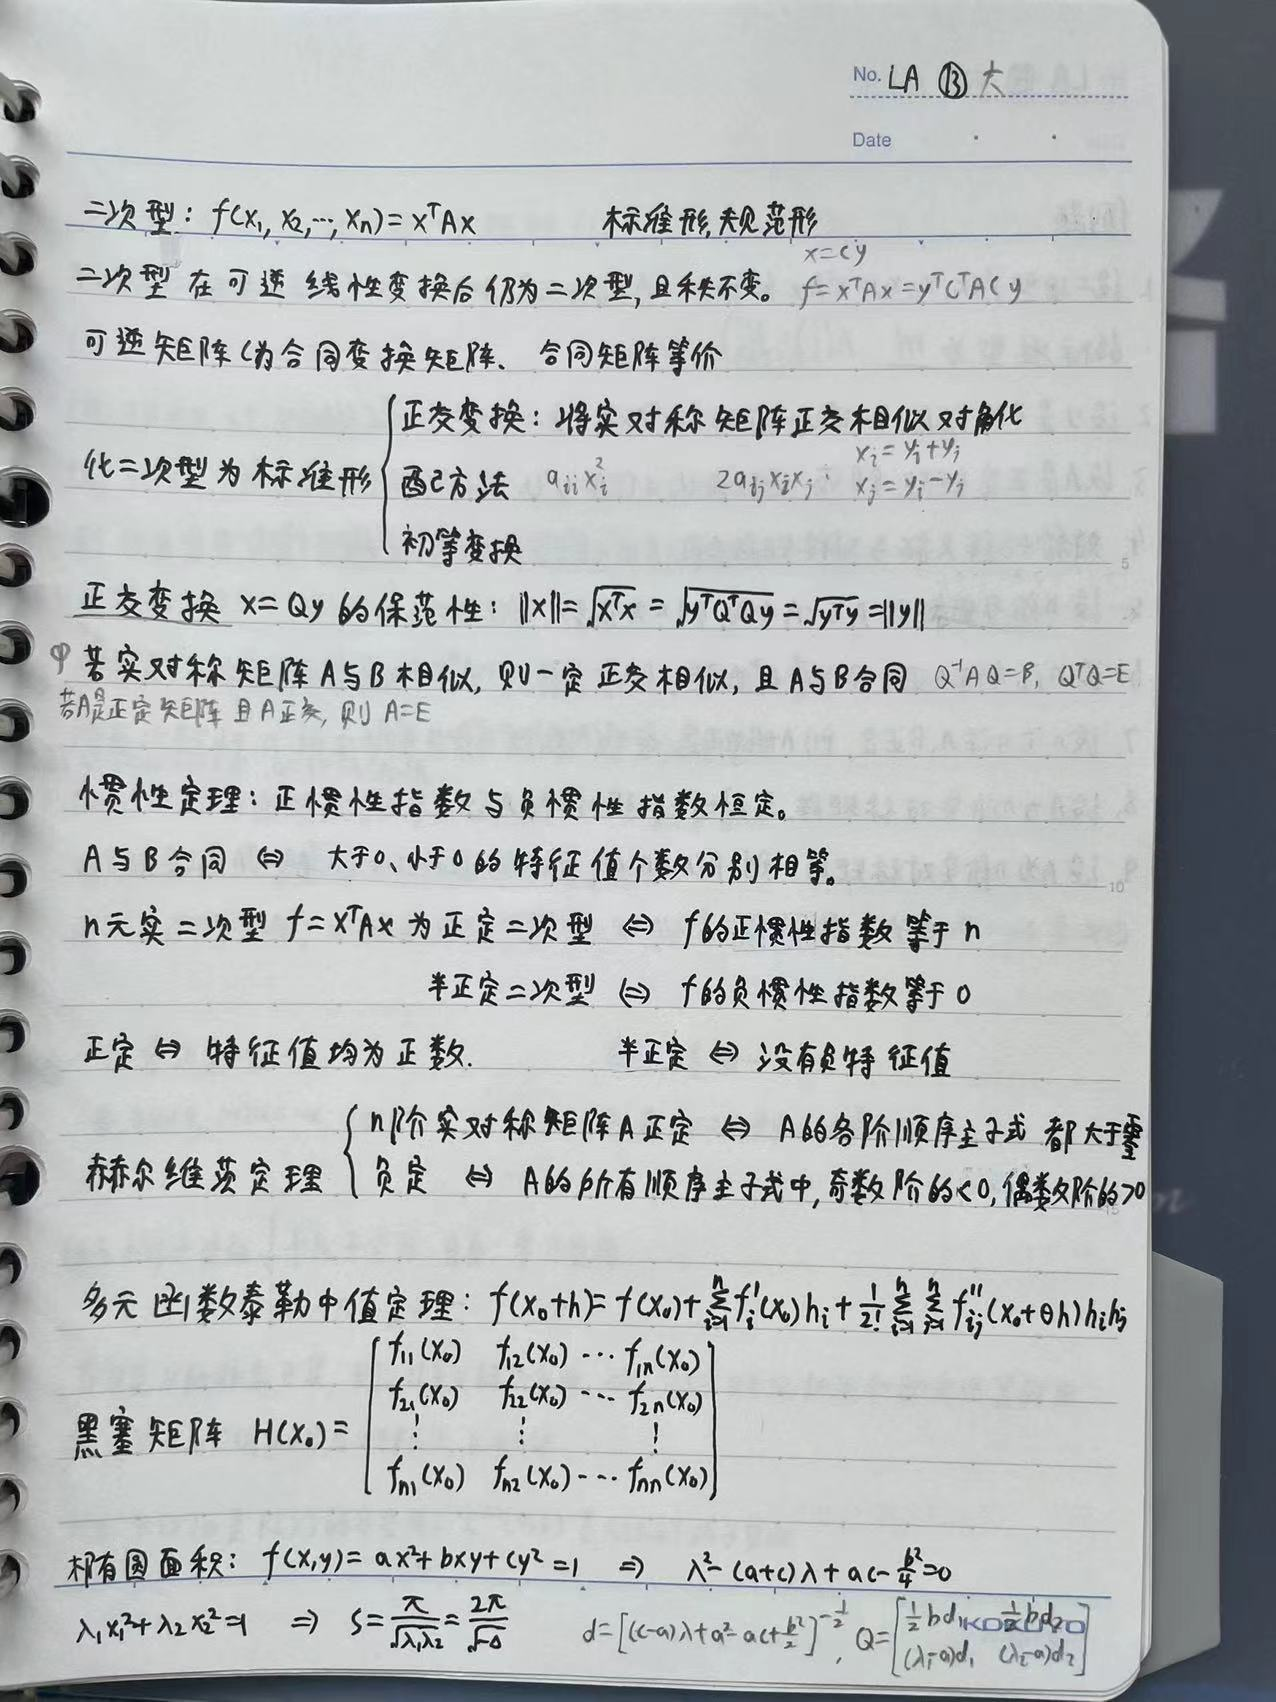 No. LA ⑬ 大
Date
二次型: f(x₁, x₂, ⋯, xₙ) = xᵀAx 标准形, 规范形
x=Cy
二次型在可逆线性变换后仍为二次型, 且秩不变。 f=xᵀAx=yᵀCᵀACy
可逆矩阵C为合同变换矩阵、 合同矩阵等价
正交变换: 将实对称矩阵正交相似对角化
化二次型为标准形 配方法 aᵢᵢxᵢ² 2aᵢⱼxᵢxⱼ: xᵢ=yᵢ+yⱼ
xⱼ=yᵢ-yⱼ
初等变换
正交变换 x=Qy 的保范性: ‖x‖=√(xᵀx) = √(yᵀQᵀQy) = √(yᵀy) =‖y‖
φ 若实对称矩阵A与B相似, 则一定正交相似, 且A与B合同 Q⁻¹AQ=B, QᵀQ=E
若A是正定矩阵且A正交, 则 A=E
惯性定理: 正惯性指数与负惯性指数恒定。
A与B合同 ⇔ 大于0、小于0的特征值个数分别相等。
n元实二次型 f=xᵀAx 为正定二次型 ⇔ f的正惯性指数等于n
半正定二次型 ⇔ f的负惯性指数等于0
正定 ⇔ 特征值均为正数. 半正定 ⇔ 没有负特征值
n阶实对称矩阵A正定 ⇔ A的各阶顺序主子式都大于零
赫尔维茨定理 负定 ⇔ A的所有顺序主子式中, 奇数阶的<0, 偶数阶的>0
多元函数泰勒中值定理: f(x₀+h)= f(x₀)+ ∑ᵢ₌₁ⁿ fᵢ'(x₀)hᵢ + 1/2! ∑ᵢ₌₁ⁿ ∑ⱼ₌₁ⁿ fᵢⱼ''(x₀+θh)hᵢhⱼ
f₁₁(x₀) f₁₂(x₀) ⋯ f₁ₙ(x₀)
f₂₁(x₀) f₂₂(x₀) ⋯ f₂ₙ(x₀)
黑塞矩阵 H(x₀)= ⋮ ⋮ ⋮
fₙ₁(x₀) fₙ₂(x₀) ⋯ fₙₙ(x₀)
椭圆面积: f(x,y)= ax²+bxy+cy² =1 ⇒ λ²-(a+c)λ+ac-b²/4=0
λ₁x₁²+λ₂x₂²=1 ⇒ S=π/√(λ₁λ₂)=2π/√(-Δ) d=[(c-a)λ+a²-ac+b²/2]^(-1/2), Q=[½bd₁ ½bd₂
(λ₁-a)d₁ (λ₂-a)d₂]
KOKUYO